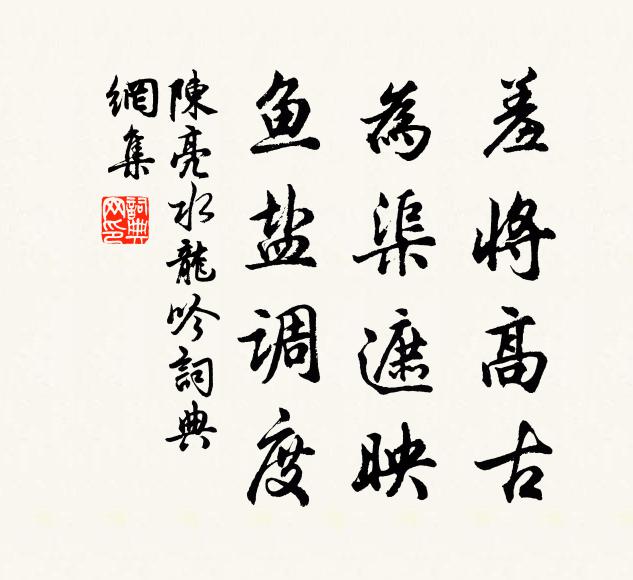 羞將高古
為渠遮映
鱼盐調度
陳亮水龍吟詞典
網集
詞典
网印